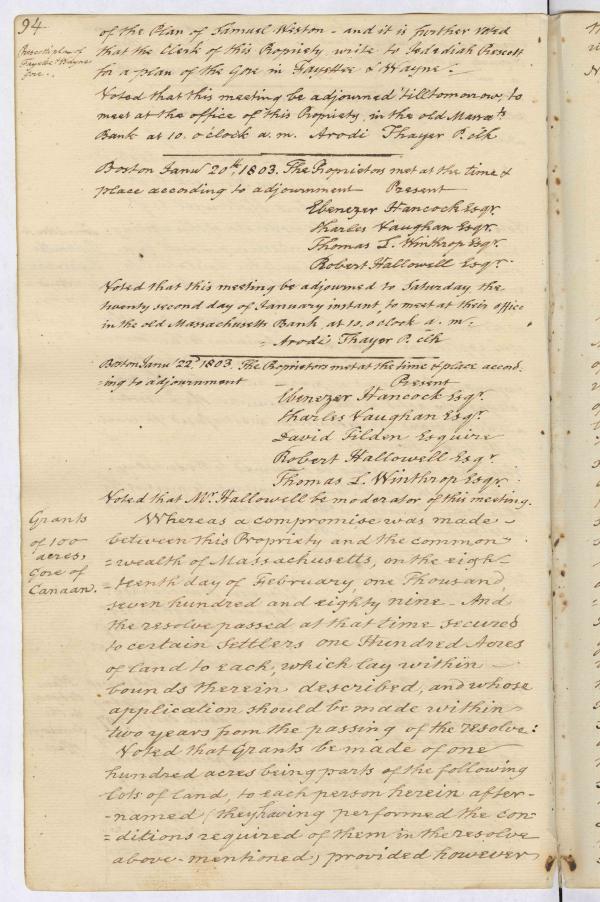 94
of the Plan of Samuel Weston - and it is further voted
that the Clerk of this Propriety, write to Jedediah Prescott
for a plan of the Gore in Fayette & Wayne.
Fayette & Wayne
Gore.
Voted that this meeting be adjourned 'till tomorrow, to
meet at the office of this Propriety, in the old Massatts
Bank at 10. o'clock a.m. Arodi Thayer P. clk
Boston Janu 20th. 1803. The Proprietors met at the time &
place according to adjournment Present
Ebenezer Hancock Esqr.
Charles Vaughan Esqr.
Thomas L. Winthrop Esqr.
Robert Hallowell Esqr.
Voted that this meeting be adjourned to Saturday, the
twenty second day of January instant, to meet at their office
in the old Massachusetts Bank, at 10. o clock a. m.
Arodi Thayer P. clk
Boston Janu 22d. 1803. The Proprietors met at the time & place accord-
=ing to adjournment Present
Ebenezer Hancock Esqr.
Charles Vaughan Esqr.
David Tilden Esquire
Robert Hallowell Esqr
Thomas L. Winthrop Esqr.
Voted that Mr. Hallowell be moderator of this meeting.
Grants
of 100
acres,
Gore of
Canaan.
Whereas a compromise was made
between this Propriety and the common
=wealth of Massachusetts, on the eigh-
=teenth day of February, one Thousand
seven hundred and eighty nine - And
the resolve passed at that time secured
to certain Settlers one Hundred Acres
of land to each, which lay within
bounds therein described, and whose
application should be made within
two years from the passing of the resolve:
Voted that Grants be made of one
hundred acres being parts of the following
lots of land, to each person herein after-
-named (they having performed the con-
=ditions required of them in the resolve
above-mentioned) provided however